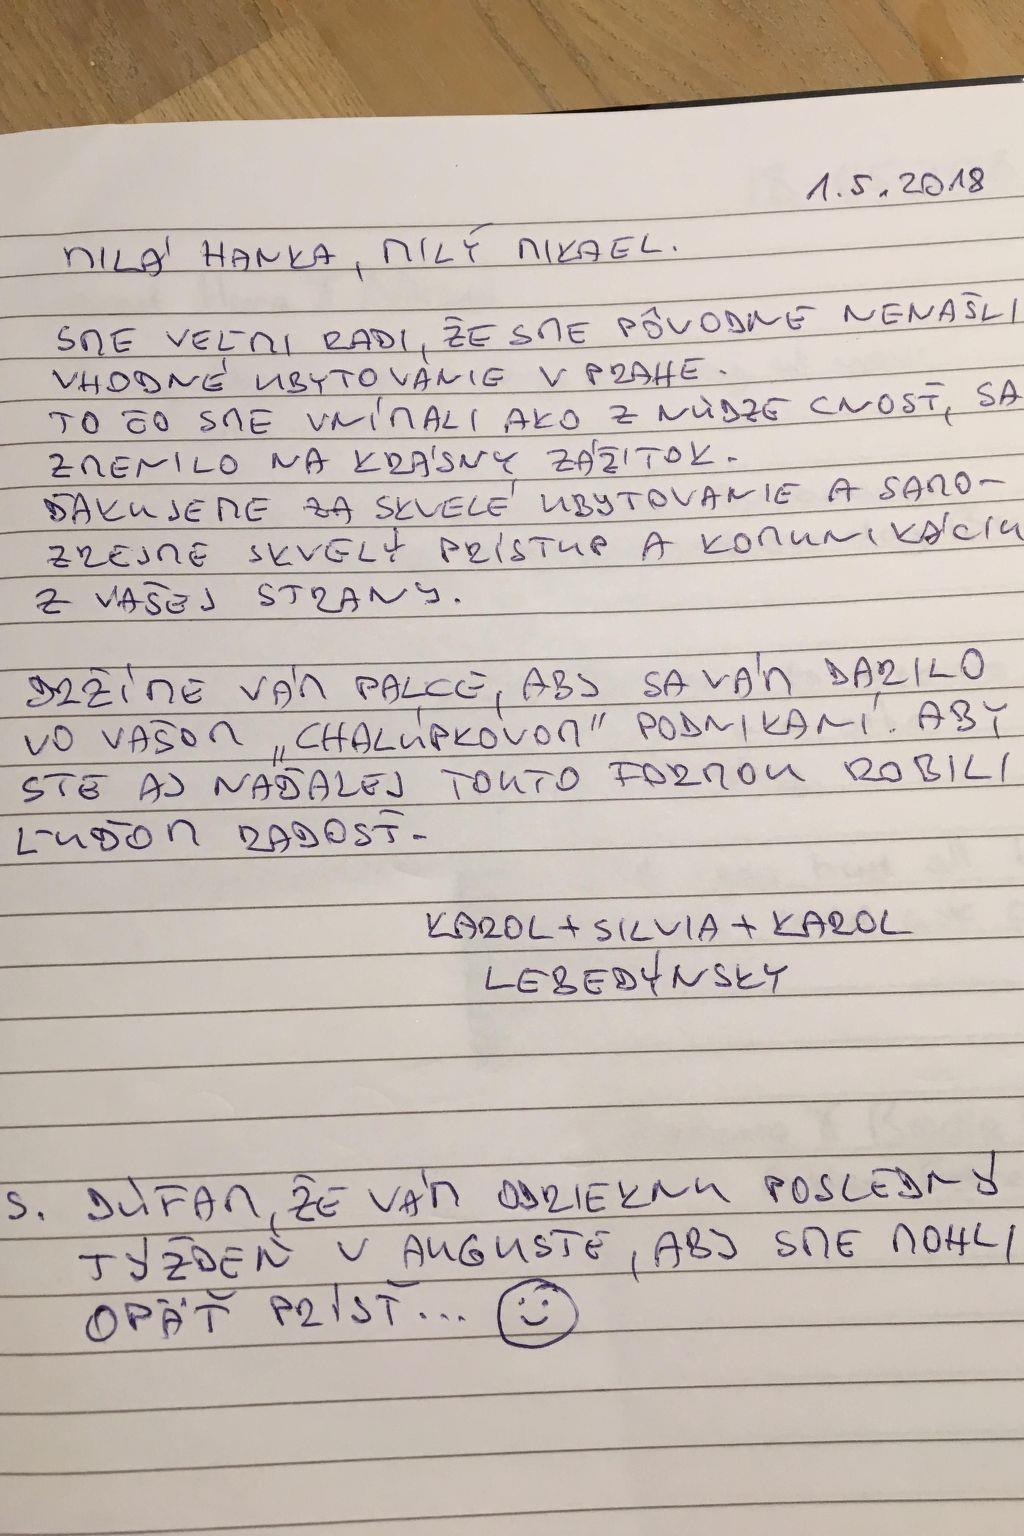 1.5.2018
MILÁ HANKA, MILÝ MIKAEL.
SME VEĽMI RADI, ŽE SME PÔVODNE NENAŠLI
VHODNÉ UBYTOVANIE V PRAHE.
TO ČO SME VNÍMALI AKO Z NÚDZE CNOSŤ, SA
ZMENILO NA KRÁSNY ZÁŽITOK.
ĎAKUJEME ZA SKVELÉ UBYTOVANIE A SAMO-
ZREJME SKVELÝ PRÍSTUP A KOMUNIKÁCIU
Z VAŠEJ STRANY.
DRŽÍME VÁM PALCE, ABY SA VÁM DARILO
VO VAŠOM „CHALÚPKOVOM" PODNIKANÍ. ABY
STE AJ NAĎALEJ TOUTO FORMOU ROBILI
ĽUĎOM RADOSŤ.
KAROL + SILVIA + KAROL
LEBEDÝNSKY
S. DÚFAM, ŽE VÁM ODRIEKNU POSLEDNÝ
TÝŽDEŇ V AUGUSTE, ABY SME MOHLI
OPÄŤ PRÍSŤ...